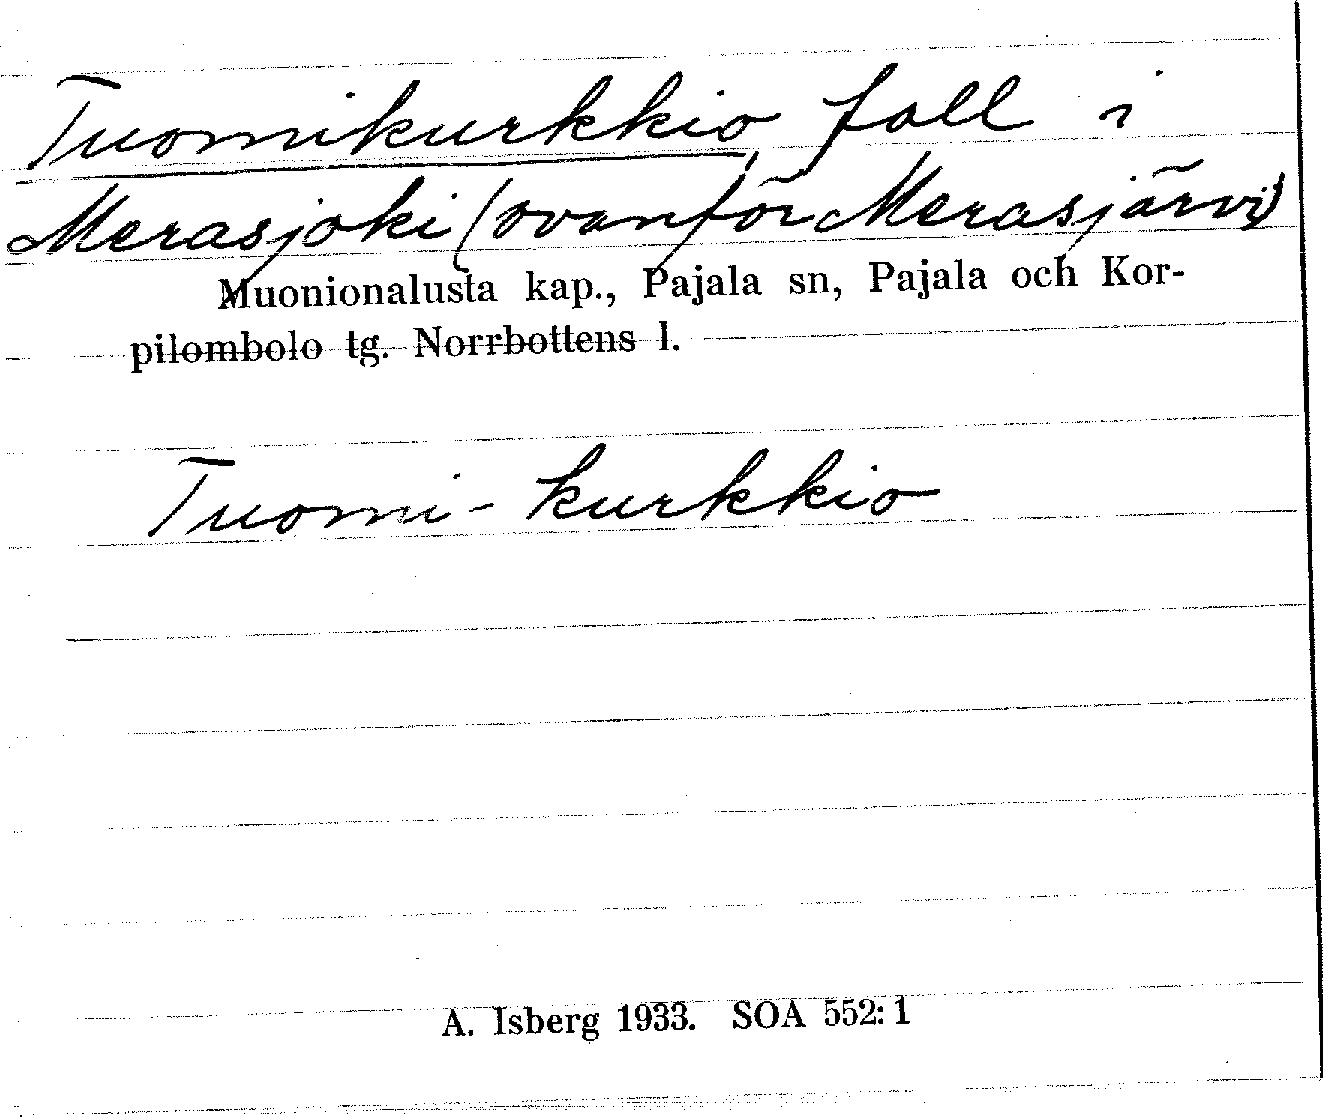 Tuomikurkkio fall i
Merasjoki (ovanför Merasjärvi)
Muonionalusta kap., Pajala sn, Pajala och Kor-
pilombolo tg. Norrbottens l.
Tuomi-kurkkio
A. Isberg 1933. SOA 552:1